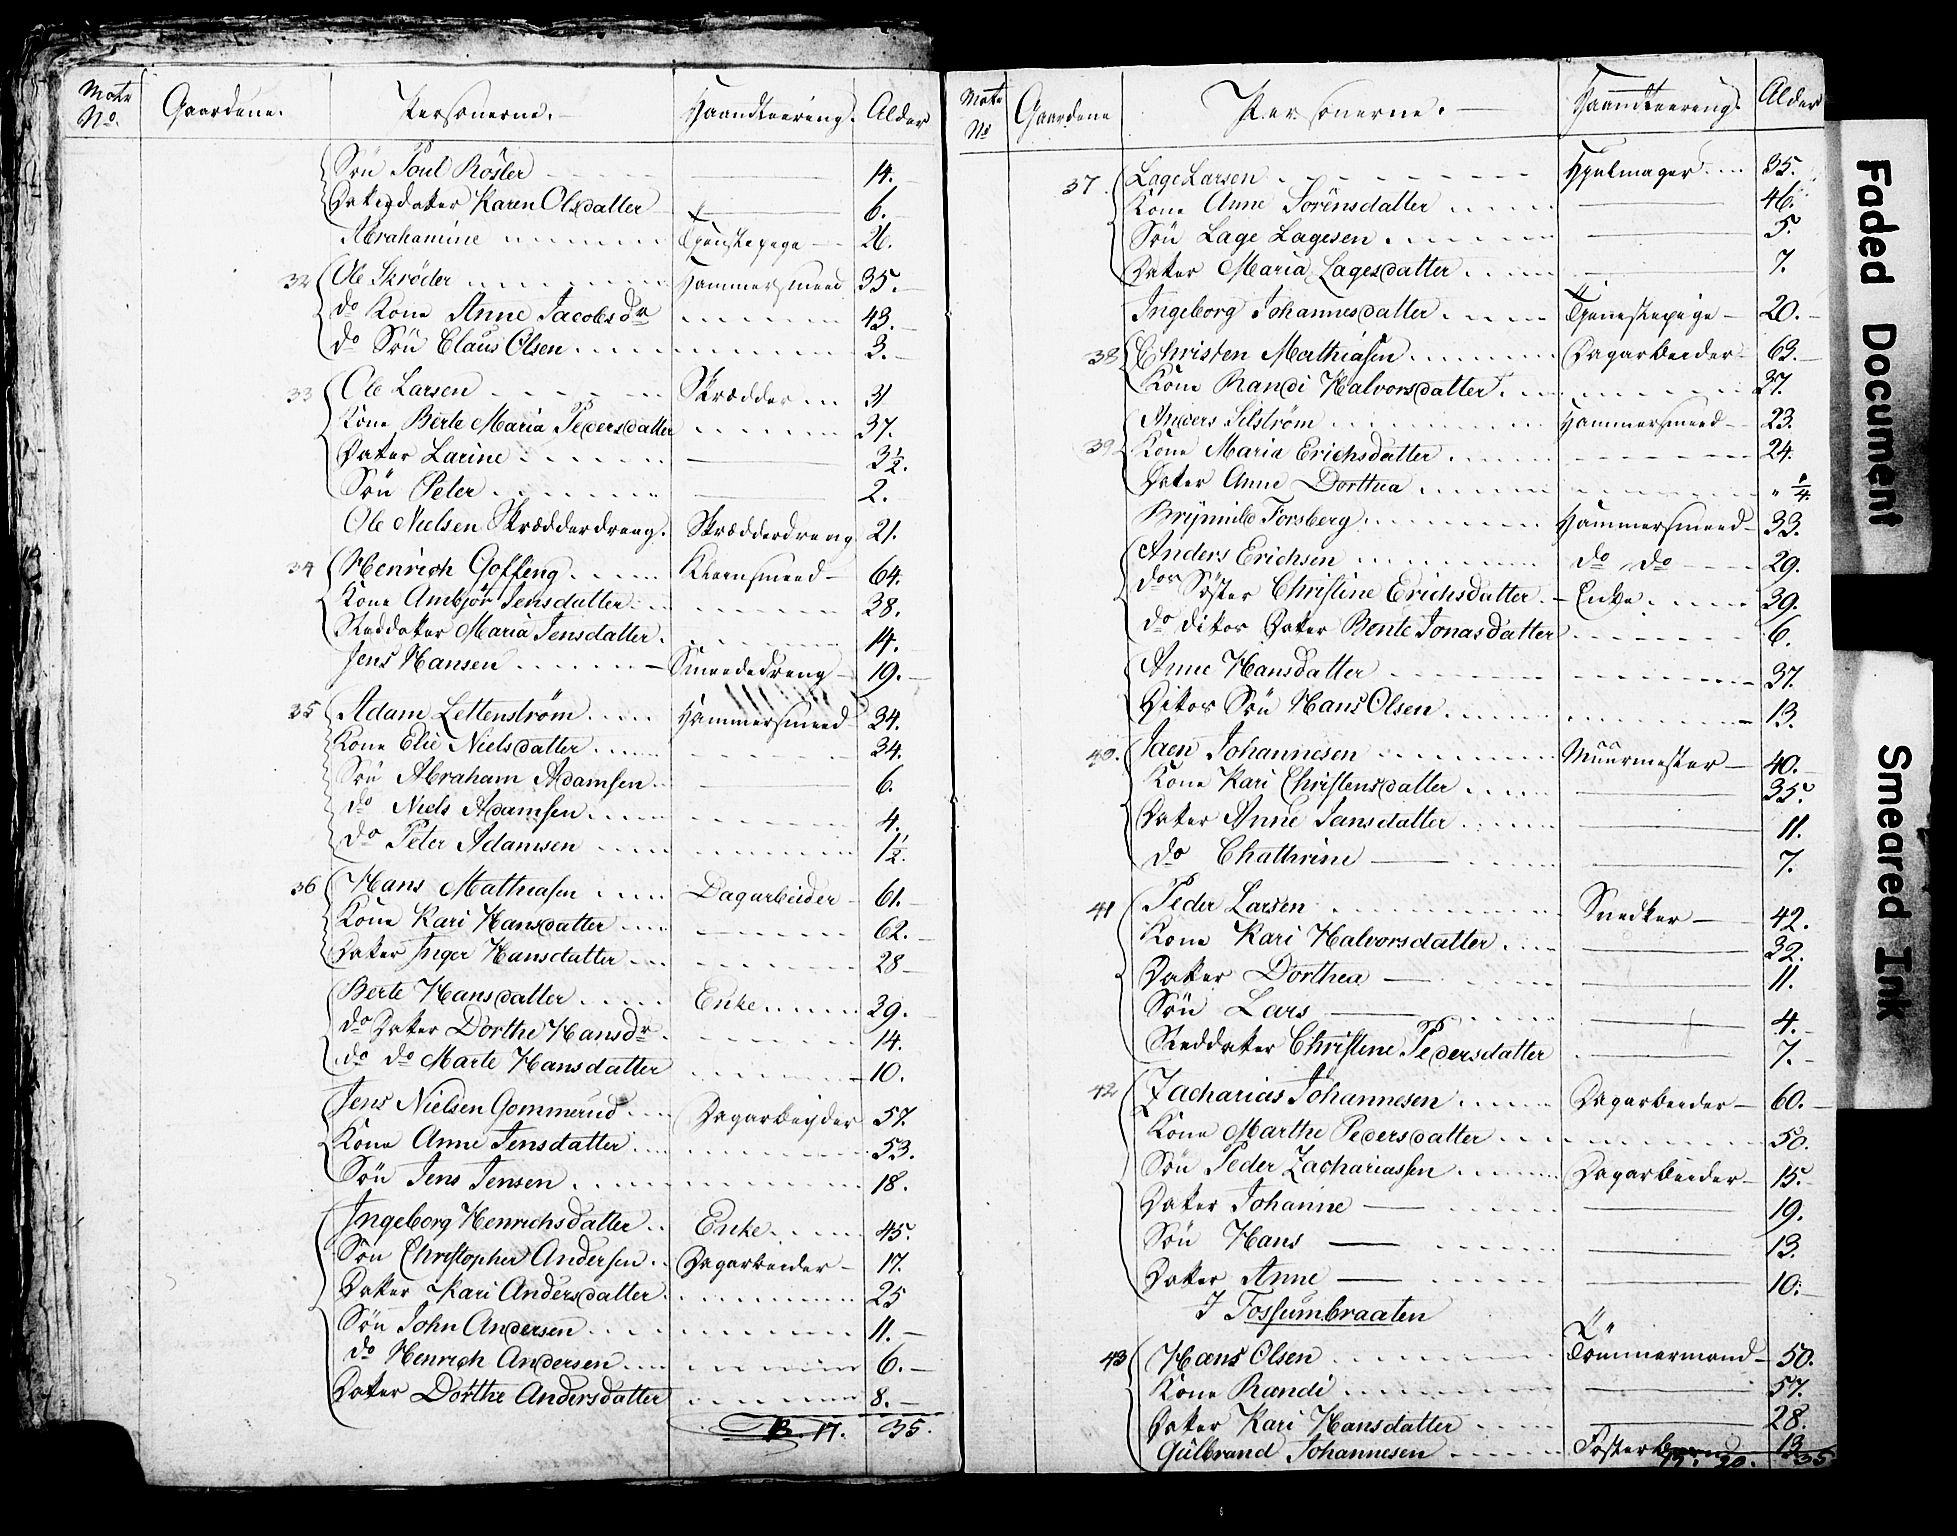 Matr No. Gaardene. Personerne. Haandteering. Alder
Søn Poul Rösler 14.
Datterdatter Karen Olsdatter 6.
Abrahamine Tjenstepige 26.
32 Ole Skrøder Hammersmeed 35.
do Kone Anne Jacobsdr 43.
do Søn Claus Olsen 3.
33 Ole Larsen Skrædder 31
Kone Berte Maria Pedersdatter 37.
Datter Larine 3½.
Søn Peter 2.
Ole Nielsen Skrædderdreng. Skrædderdreng 21.
34 Henrich Goffeng Kleensmeed 64.
Kone Ambjör Jensdatter 38.
Steddatter Maria Jensdatter. 14.
Jens Hansen Smeededreng 19.
35 Adam Lettenström Hammersmeed 34.
Kone Elie Nielsdatter 34.
Søn Abraham Adamsen 6.
do Niels Adamsen 4.
do Peter Adamsen 1½.
36 Hans Mathiasen Dagarbeider 61.
Kone Kari Hansdatter 62.
Datter Inger Hansdatter 28
Berte Hansdatter Enke 39.
do Datter Dorthe Hansdr 14.
do do Marte Hansdatter 10.
Jens Nielsen Gommerud Dagarbeyder 57.
Kone Anne Jensdatter 53.
Søn Jens Jensen 18.
Ingeborg Henrichsdatter Enke 45.
Søn Christopher Andersen Dagarbeider 17.
Datter Kari Andersdatter 25
Søn John Andersen 11.
do Henrich Andersen 6.
Datter Dorthe Andersdatter 8.
17. 35.
Matr No Gaardene Personerne. Haandteering. Alder
37. Lage Larsen Hjulmager 35.
Kone Anne Sörensdatter 46.
Søn Lage Lagesen 5.
Datter Maria Lagesdatter 7.
Ingeborg Johannesdatter Tjenestepige 20.
38 Christen Mathiasen Dagarbeider 63.
Kone Randi Halvorsdatter 37.
Anders Selström Hammersmeed 23.
39 Kone Maria Erichsdatter 24.
Datter Anne Dorthea " ¼
Forsberg Hammersmeed 33.
Anders Erichsen do do 29.
dos Söster Christine Erichsdatter. Enke 39.
do ditos Datter Bente Jonasdatter 6.
Anne Hansdatter 37.
Ditos Søn Hans Olsen 13.
40. Jaen Johannesen Muurmester 40.
Kone Kari Christensdatter 35.
Datter Anne Jansdatter 11.
do Chathrine 7.
41 Peder Larsen Snedker 42.
Kone Kari Halvorsdatter 32.
Datter Dorthea 11.
Søn Lars 4.
Steddatter Christine Pedersdatter 7.
42 Zacharias Johannesen Dagarbeider 60.
Kone Marthe Pedersdatter 50.
Søn Peder Zachariassen Dagarbeider 15.
Datter Johanne 19.
Søn Hans 13.
Datter Anne 10.
I Fossumbraaten
43 Hans Olsen Tömmermand 50.
Kone Randi 57.
Datter Kari Hansdatter 28.
Gulbrand Johannesen Fosterbarn 13
20. 35
Faded Document
Smeared Ink